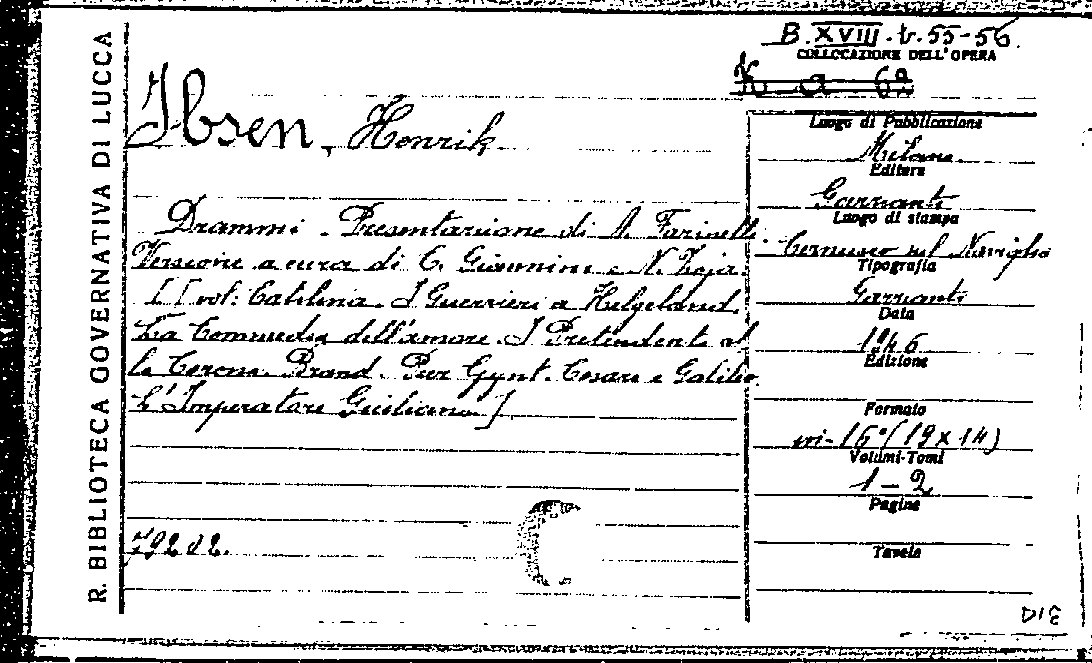 R. BIBLIOTECA GOVERNATIVA DI LUCCA
B. XVIII. t. 55-56.
COLLOCAZIONE DELL'OPERA
K a 62
Ibsen, Henrik
Drammi. Presentazione di A. Farinelli
Versione a cura di G. Giannini e N. Zoja.
[I vol: Catilina. I Guerrieri a Helgeland.
La Commedia dell'amore. I Pretendenti al
la Corona. Brand. Peer Gynt. Cesare e Galileo.
L'Imperatore Giuliano]
79202.
Luogo di Pubblicazione
Milano
Editore
Garzanti
Luogo di stampa
Cernusco sul Naviglio
Tipografia
Garzanti
Data
1946
Edizione
Formato
in-16° (19x14)
Volumi-Tomi
1-2
Pagine
Tavole